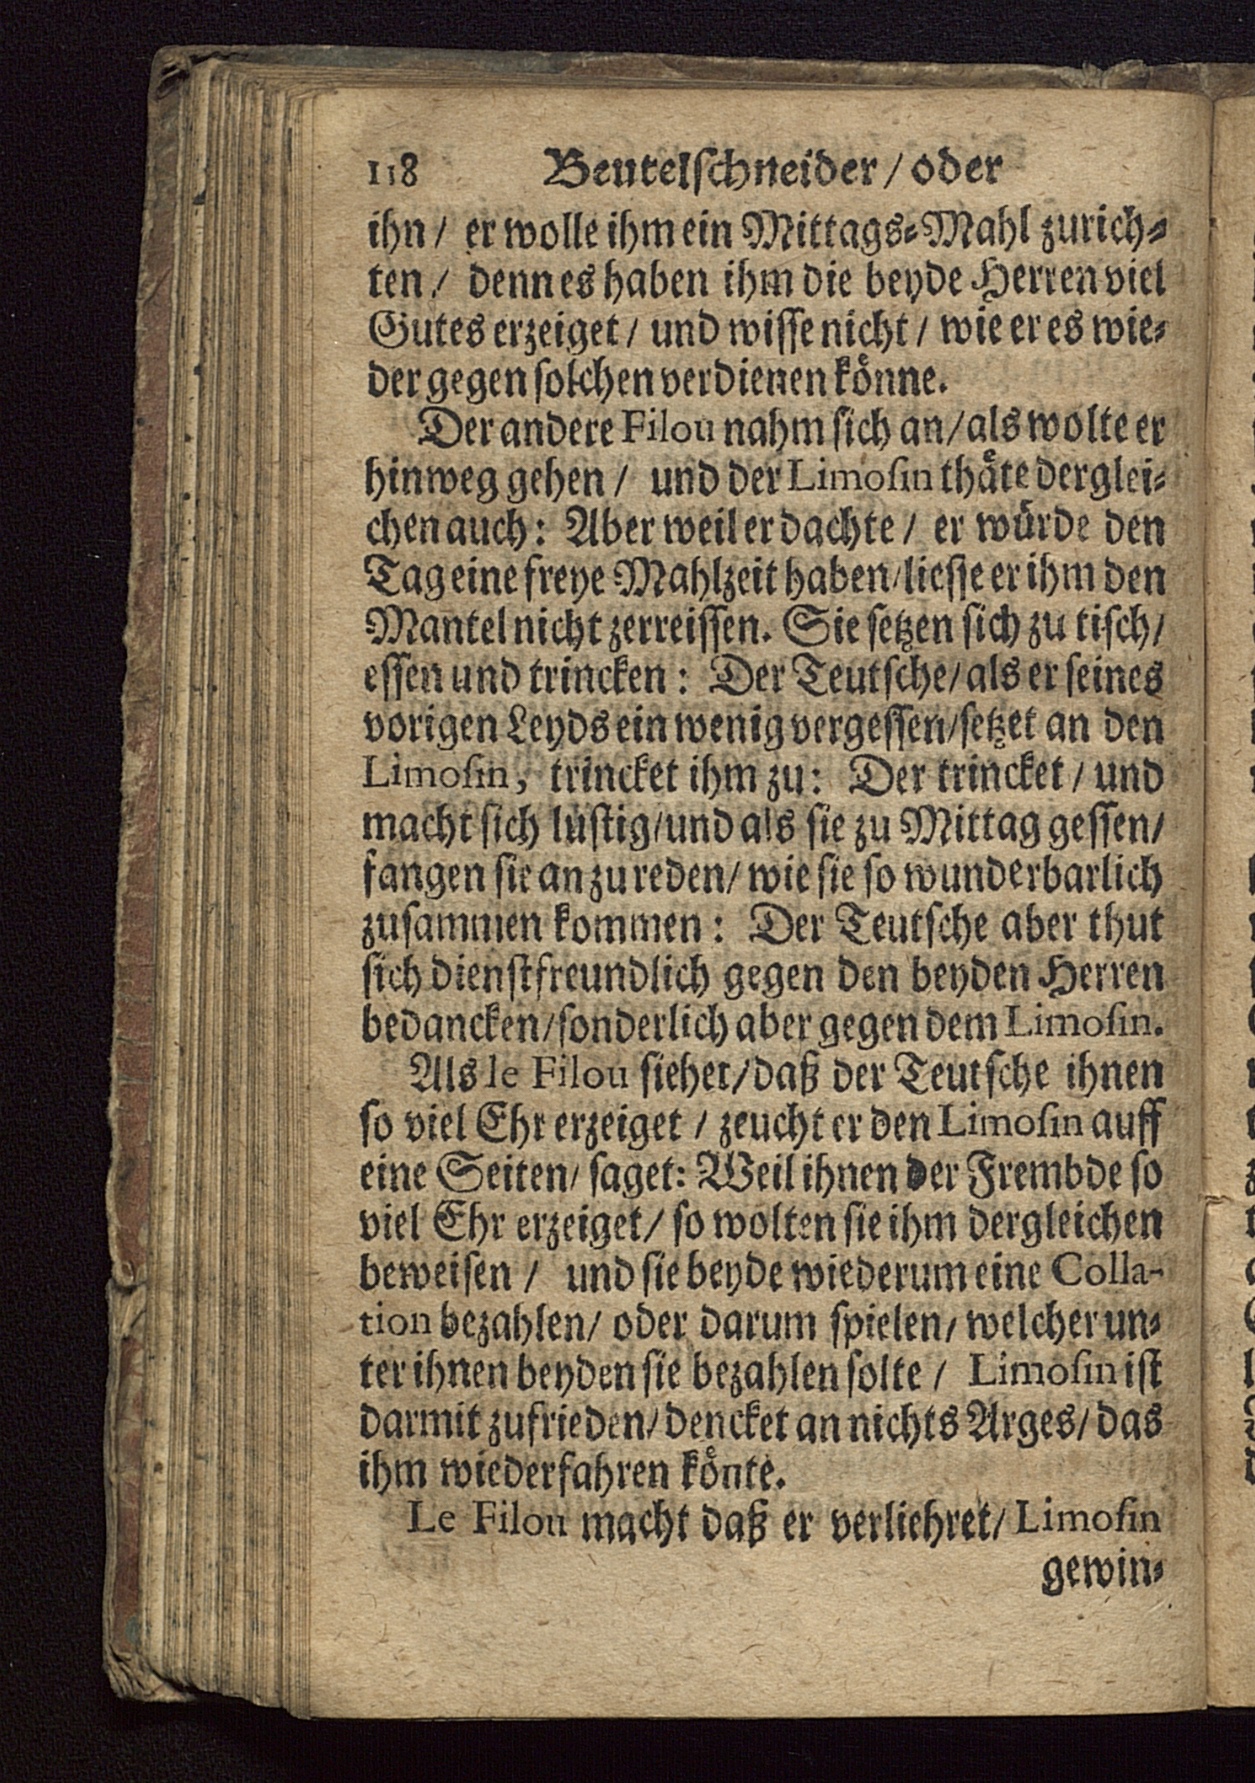 118 Beutelschneider / oder
ihn / er wolle ihm ein Mittags-Mahl zurich-
ten / denn es haben ihm die beyde Herren viel
Gutes erzeiget / und wisse nicht / wie er es wie-
der gegen solchen verdienen könne.
Der andere Filou nahm sich an / als wolte er
hinweg gehen / und der Limosin thäte derglei-
chen auch: Aber weil er dachte / er würde den
Tag eine freye Mahlzeit haben / liesse er ihm den
Mantel nicht zerreissen. Sie setzen sich zu tisch /
essen und trincken: Der Teutsche / als er seines
vorigen Leyds ein wenig vergessen / setzet an den
Limosin, trincket ihm zu: Der trincket / und
macht sich lustig / und als sie zu Mittag gessen /
fangen sie an zu reden / wie sie so wunderbarlich
zusammen kommen: Der Teutsche aber thut
sich dienstfreundlich gegen den beyden Herren
bedancken / sonderlich aber gegen dem Limosin.
Als le Filou siehet / daß der Teutsche ihnen
so viel Ehr erzeiget / zeucht er den Limosin auff
eine Seiten / saget: Weil ihnen der Frembde so
viel Ehr erzeiget / so wolten sie ihm dergleichen
beweisen / und sie beyde wiederum eine Colla-
tion bezahlen / oder darum spielen / welcher un-
ter ihnen beyden sie bezahlen solte / Limosin ist
darmit zufrieden / dencket an nichts Arges / das
ihm wiederfahren könte.
Le Filou macht daß er verliehret / Limosin
gewin-